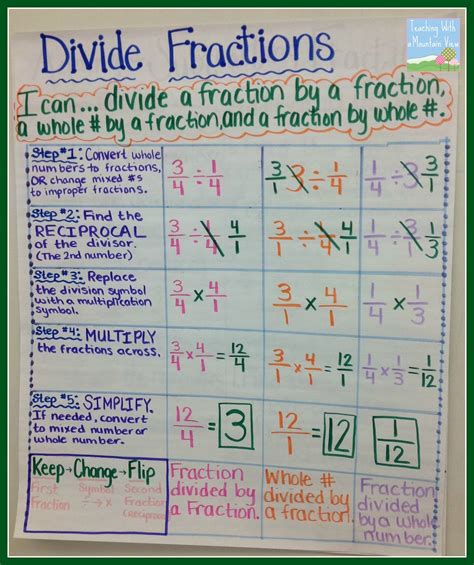 Teaching With
a Mountain View
Divide Fractions
I can... divide a fraction by a fraction,
a whole # by a fraction, and a fraction by whole #.
Step #1: Convert whole
numbers to fractions,
OR change mixed #s
to improper fractions.
3/4 ÷ 1/4
3/1 3 ÷ 1/4
1/4 ÷ 3 3/1
Step #2: Find the
RECIPROCAL
of the divisor.
(The 2nd number)
3/4 ÷ 1/4 4/1
3/1 ÷ 1/4 4/1
1/4 ÷ 3/1 1/3
Step #3: Replace
the division symbol
with a multiplication
symbol.
3/4 x 4/1
3/1 x 4/1
1/4 x 1/3
Step #4: MULTIPLY
the fractions across.
3/4 x 4/1 = 12/4
3/1 x 4/1 = 12/1
1/4 x 1/3 = 1/12
Step #5: SIMPLIFY.
If needed, convert
to mixed number or
whole number.
12/4 = 3
12/1 = 12
1/12
Keep → Change → Flip
First Symbol Second
Fraction ÷ → x Fraction
(reciprocal)
Fraction
divided by
a Fraction.
Whole #
divided by
a fraction.
Fraction
divided
by a whole
number.